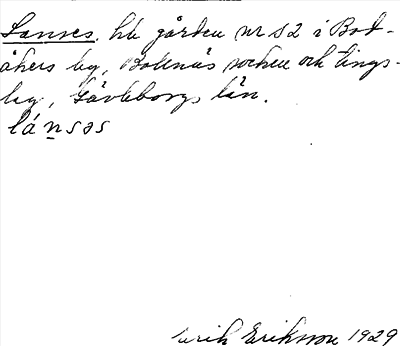 Lanses, hb gården nr 52 i Bod-
åkers by, Bollnäs socken och tings-
lag, Gävleborgs län.
lánsəs
Erik Eriksson 1929